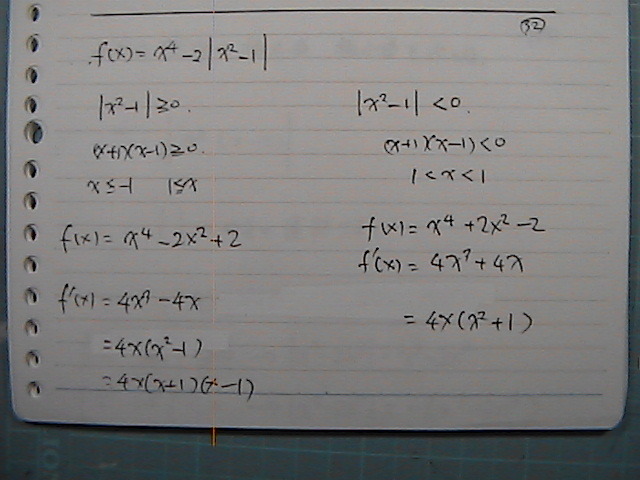 (32)
f(x) = x⁴ - 2|x² - 1|
|x² - 1| ≥ 0.
(x+1)(x-1) ≥ 0.
x ≤ -1 1 ≤ x
f(x) = x⁴ - 2x² + 2
f'(x) = 4x³ - 4x
= 4x(x² - 1)
= 4x(x+1)(x-1)
|x² - 1| < 0.
(x+1)(x-1) < 0
1 < x < 1
f(x) = x⁴ + 2x² - 2
f'(x) = 4x³ + 4x
= 4x(x² + 1)